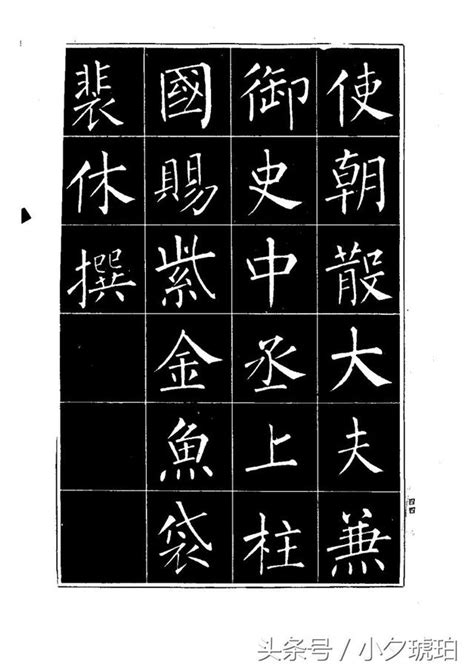 使朝散大夫兼
御史中丞上柱
國賜紫金魚袋
裴休撰
四四
头条号 / 小夕琥珀